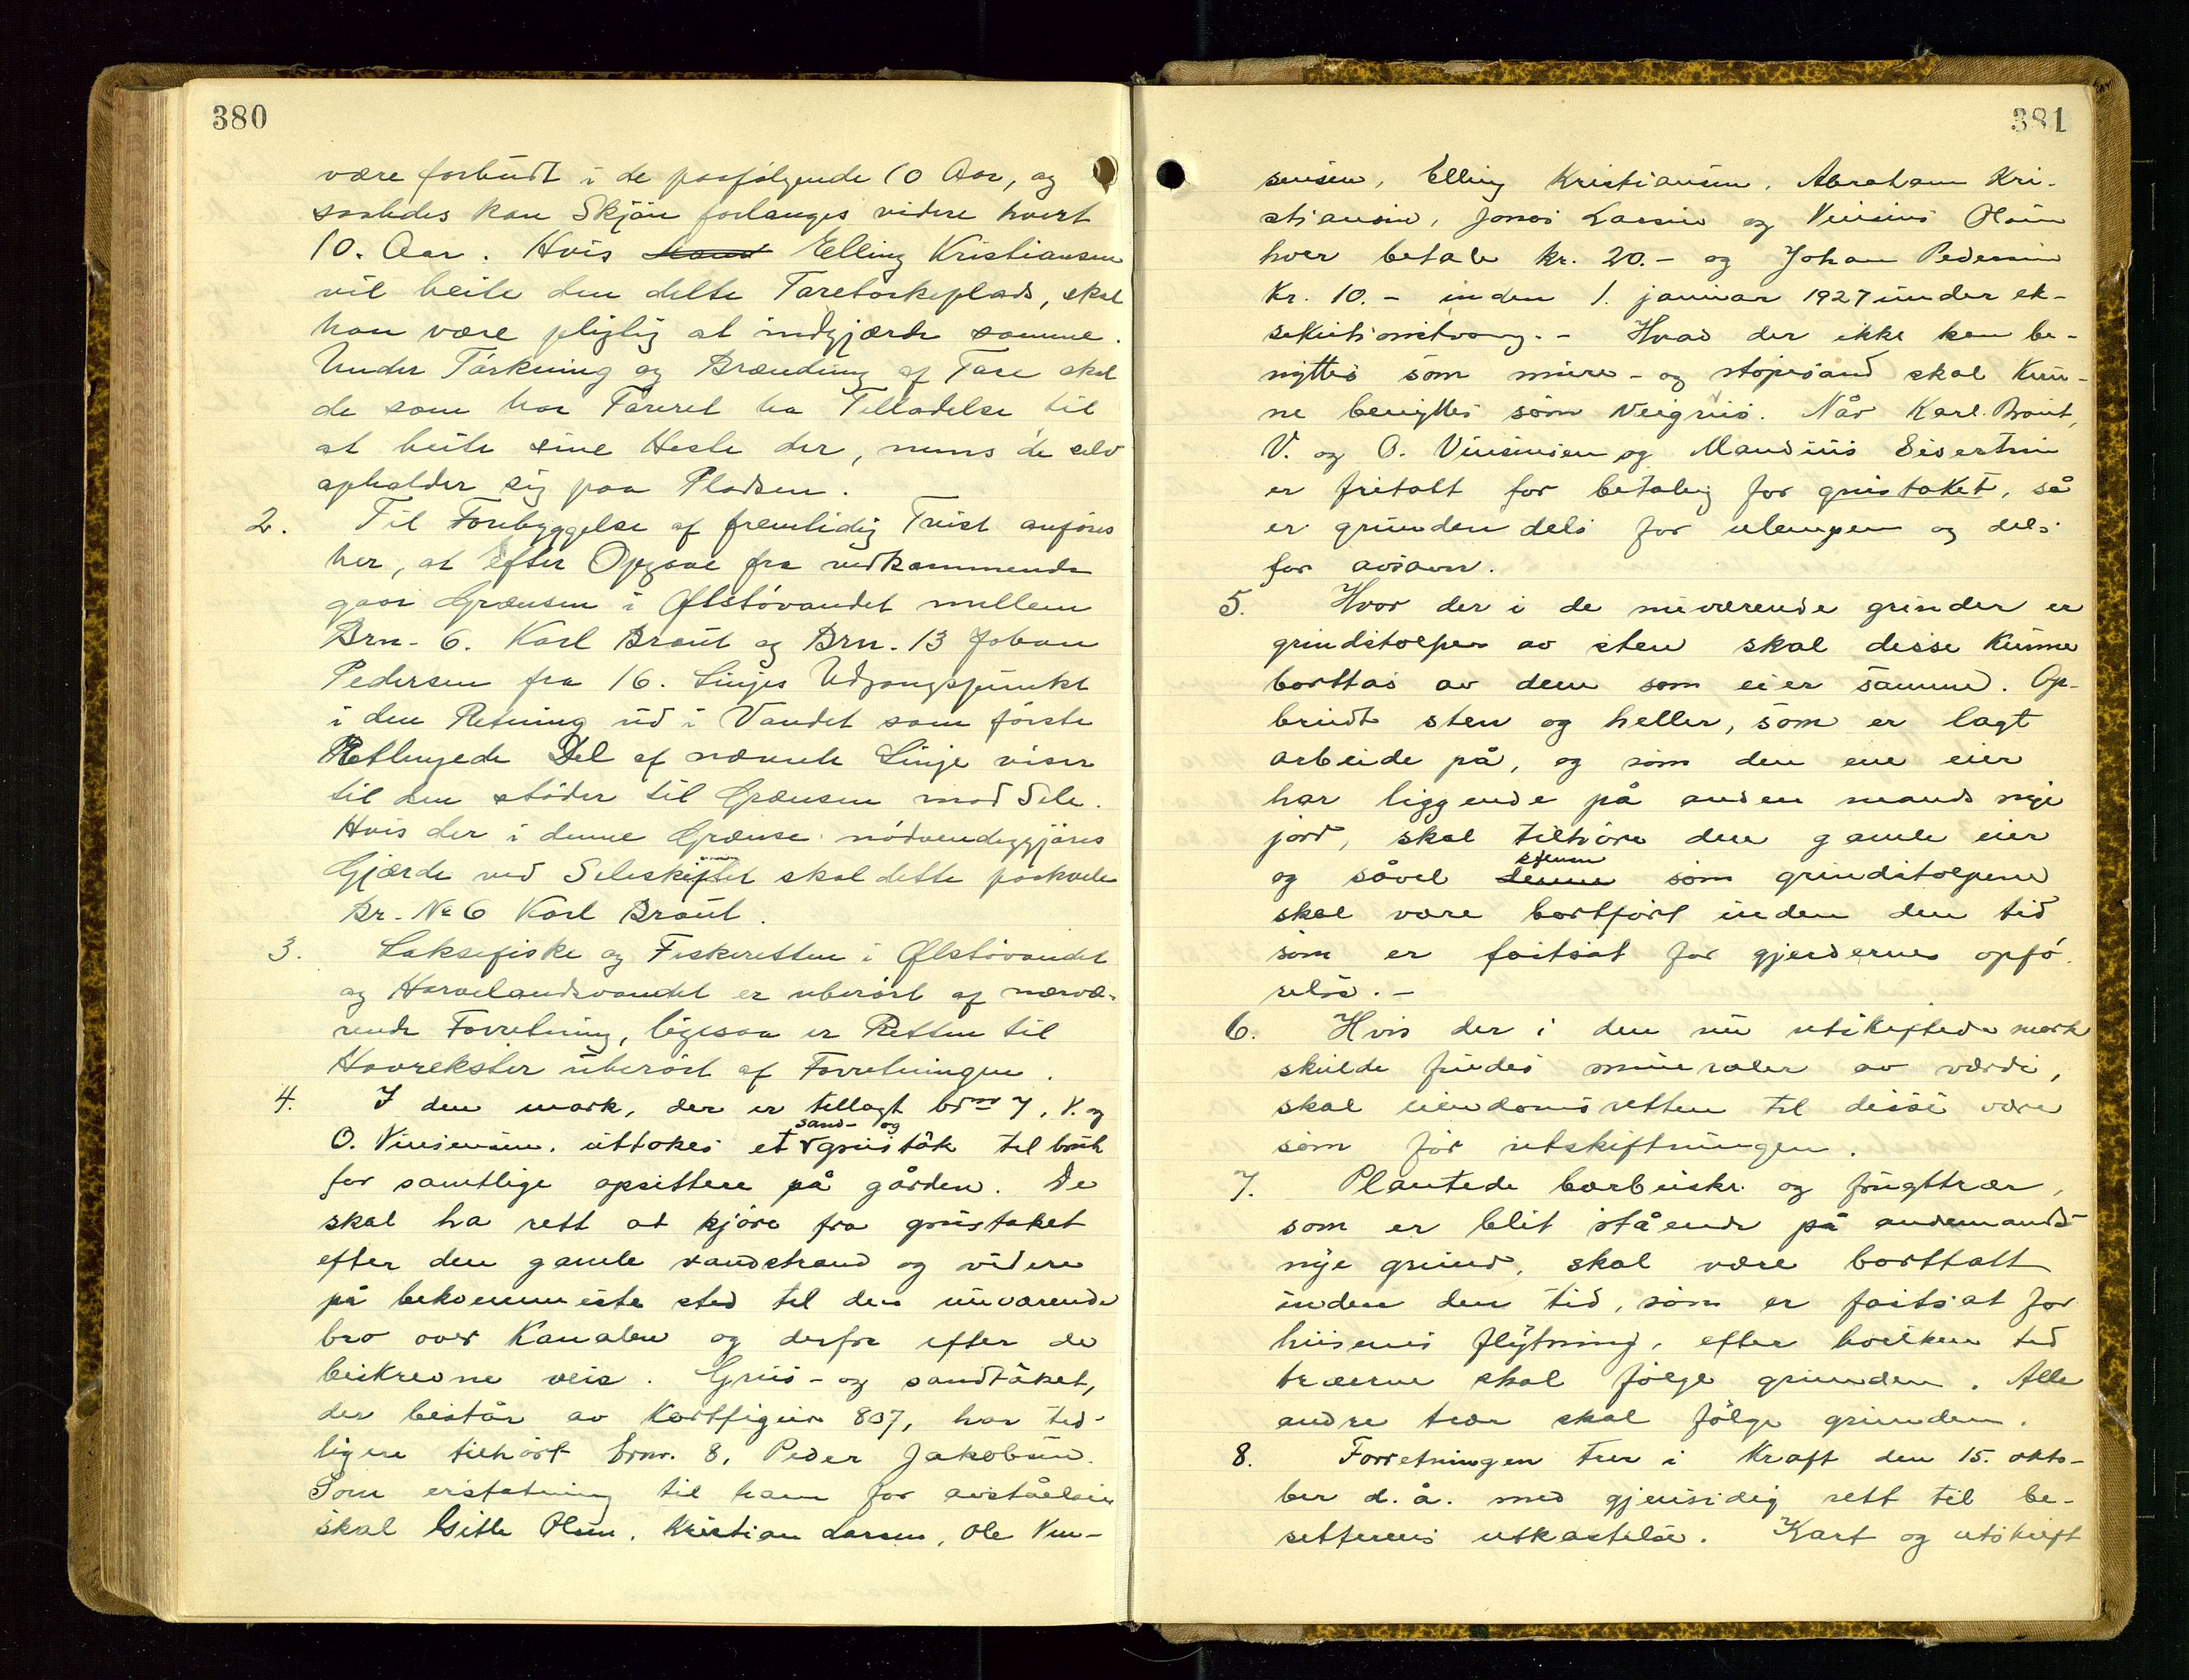 380
være forbudt i de paafølgende 10 Aar, og
saaledes kan Skjøn forlanges videre hvert
10. Aar. Hvis Elling Kristiansen
vil beite den delte Taretørkeplads, skal
han være pligtig at indgjærde samme.
Under Tørkning og Brænding af Tare skal
de som har Tareret ha Tilladelse til
at beite sine Heste der, mens de selv
opholder sig paa Pladsen.
2. Til Forebyggelse af fremtidig Tvist anføres
her, at efter Opgave fra vedkommende
gaar Grænsen i Ølstøvandet mellem
Brn. 6. Karl Braut og Brn. 13 Johan
Pedersen fra 16. Linjes Udgangspunkt
i den Retning ud i Vandet som første
Retlinjede Del af nævnte Linje viser
til den støder til Grænsen mod Sele.
Hvis der i denne Grænse nødvendiggjøres
Gjærde ved Seleskiftet skal dette paahvile
Br. No 6 Karl Braut.
3. Laksefiske og Fiskeretten i Ølstøvandet
og Horvelandsvandet er uberørt af nærvæ-
rende Forretning, ligesaa er Retten til
Havrekster uberørt af Forretningen.
4. I den mark, der er tillagt brnr 7, V. og
O. Vinsensen. uttakes et sand- og grustak til bruk
for samtlige opsittere på gården. De
skal ha rett at kjøre fra grustaket
efter den gamle vandstrand og videre
på bekvemmeste sted til den nuværende
bro over Kanalen og derfra efter de
beskrevne veie. Grus- og sandtaket,
der består av Kartfigur 837, har tid-
ligere tilhørt brnr. 8, Peder Jakobsen.
Som erstatning til ham for avståelsen
skal Gitle Olsen, Kristian Larsen, Ole Vin-
381
sensen, Elling Kristiansen, Abraham Kri-
stiansen, Jonas Larsen og Vinsens Olsen
hver betale kr. 20.- og Johan Pedersen
Kr. 10.- inden 1. januar 1927 under ek-
sekutionstvang.- Hvad der ikke kan be-
nyttes som mure- og støpesand skal kun-
ne benyttes som veigrus. Når Karl Braut,
V. og O. Vinsensen og Mandius Sivertsen
er fritatt for betaling for grustaket, så
er grunden dels for ulempen og dels
for avsavn.
5. Hvor der i de nuværende grinder er
grindstolper av sten skal disse kunne
borttas av den som eier samme. Op-
brudt sten og heller, som er lagt
arbeide på, og som den ene eier
har liggende på anden mands nye
jord, skal tilhøre den gamle eier
og såvel stenen som grindstolpene
skal være bortført inden den tid
som er fastsat for gjerdernes opfø-
relse.-
6. Hvis der i den nu utskiftede mark
skulde findes mineraler av værdi,
skal eiendomsretten til disse være
som før utskiftningen.
7. Plantede bærbuske og frugttrær,
som er blit stående på andenmands
nye grund, skal være borttatt
inden den tid, som er fastsat for
husenes flytning, efter hvilken tid
træerne skal følge grunden. Alle
andre trær skal følge grunden.
8. Forretningen trer i Kraft den 15. okto-
ber d. å. med gjensidig rett til be-
setterens utkastelse. Kart og utskrift